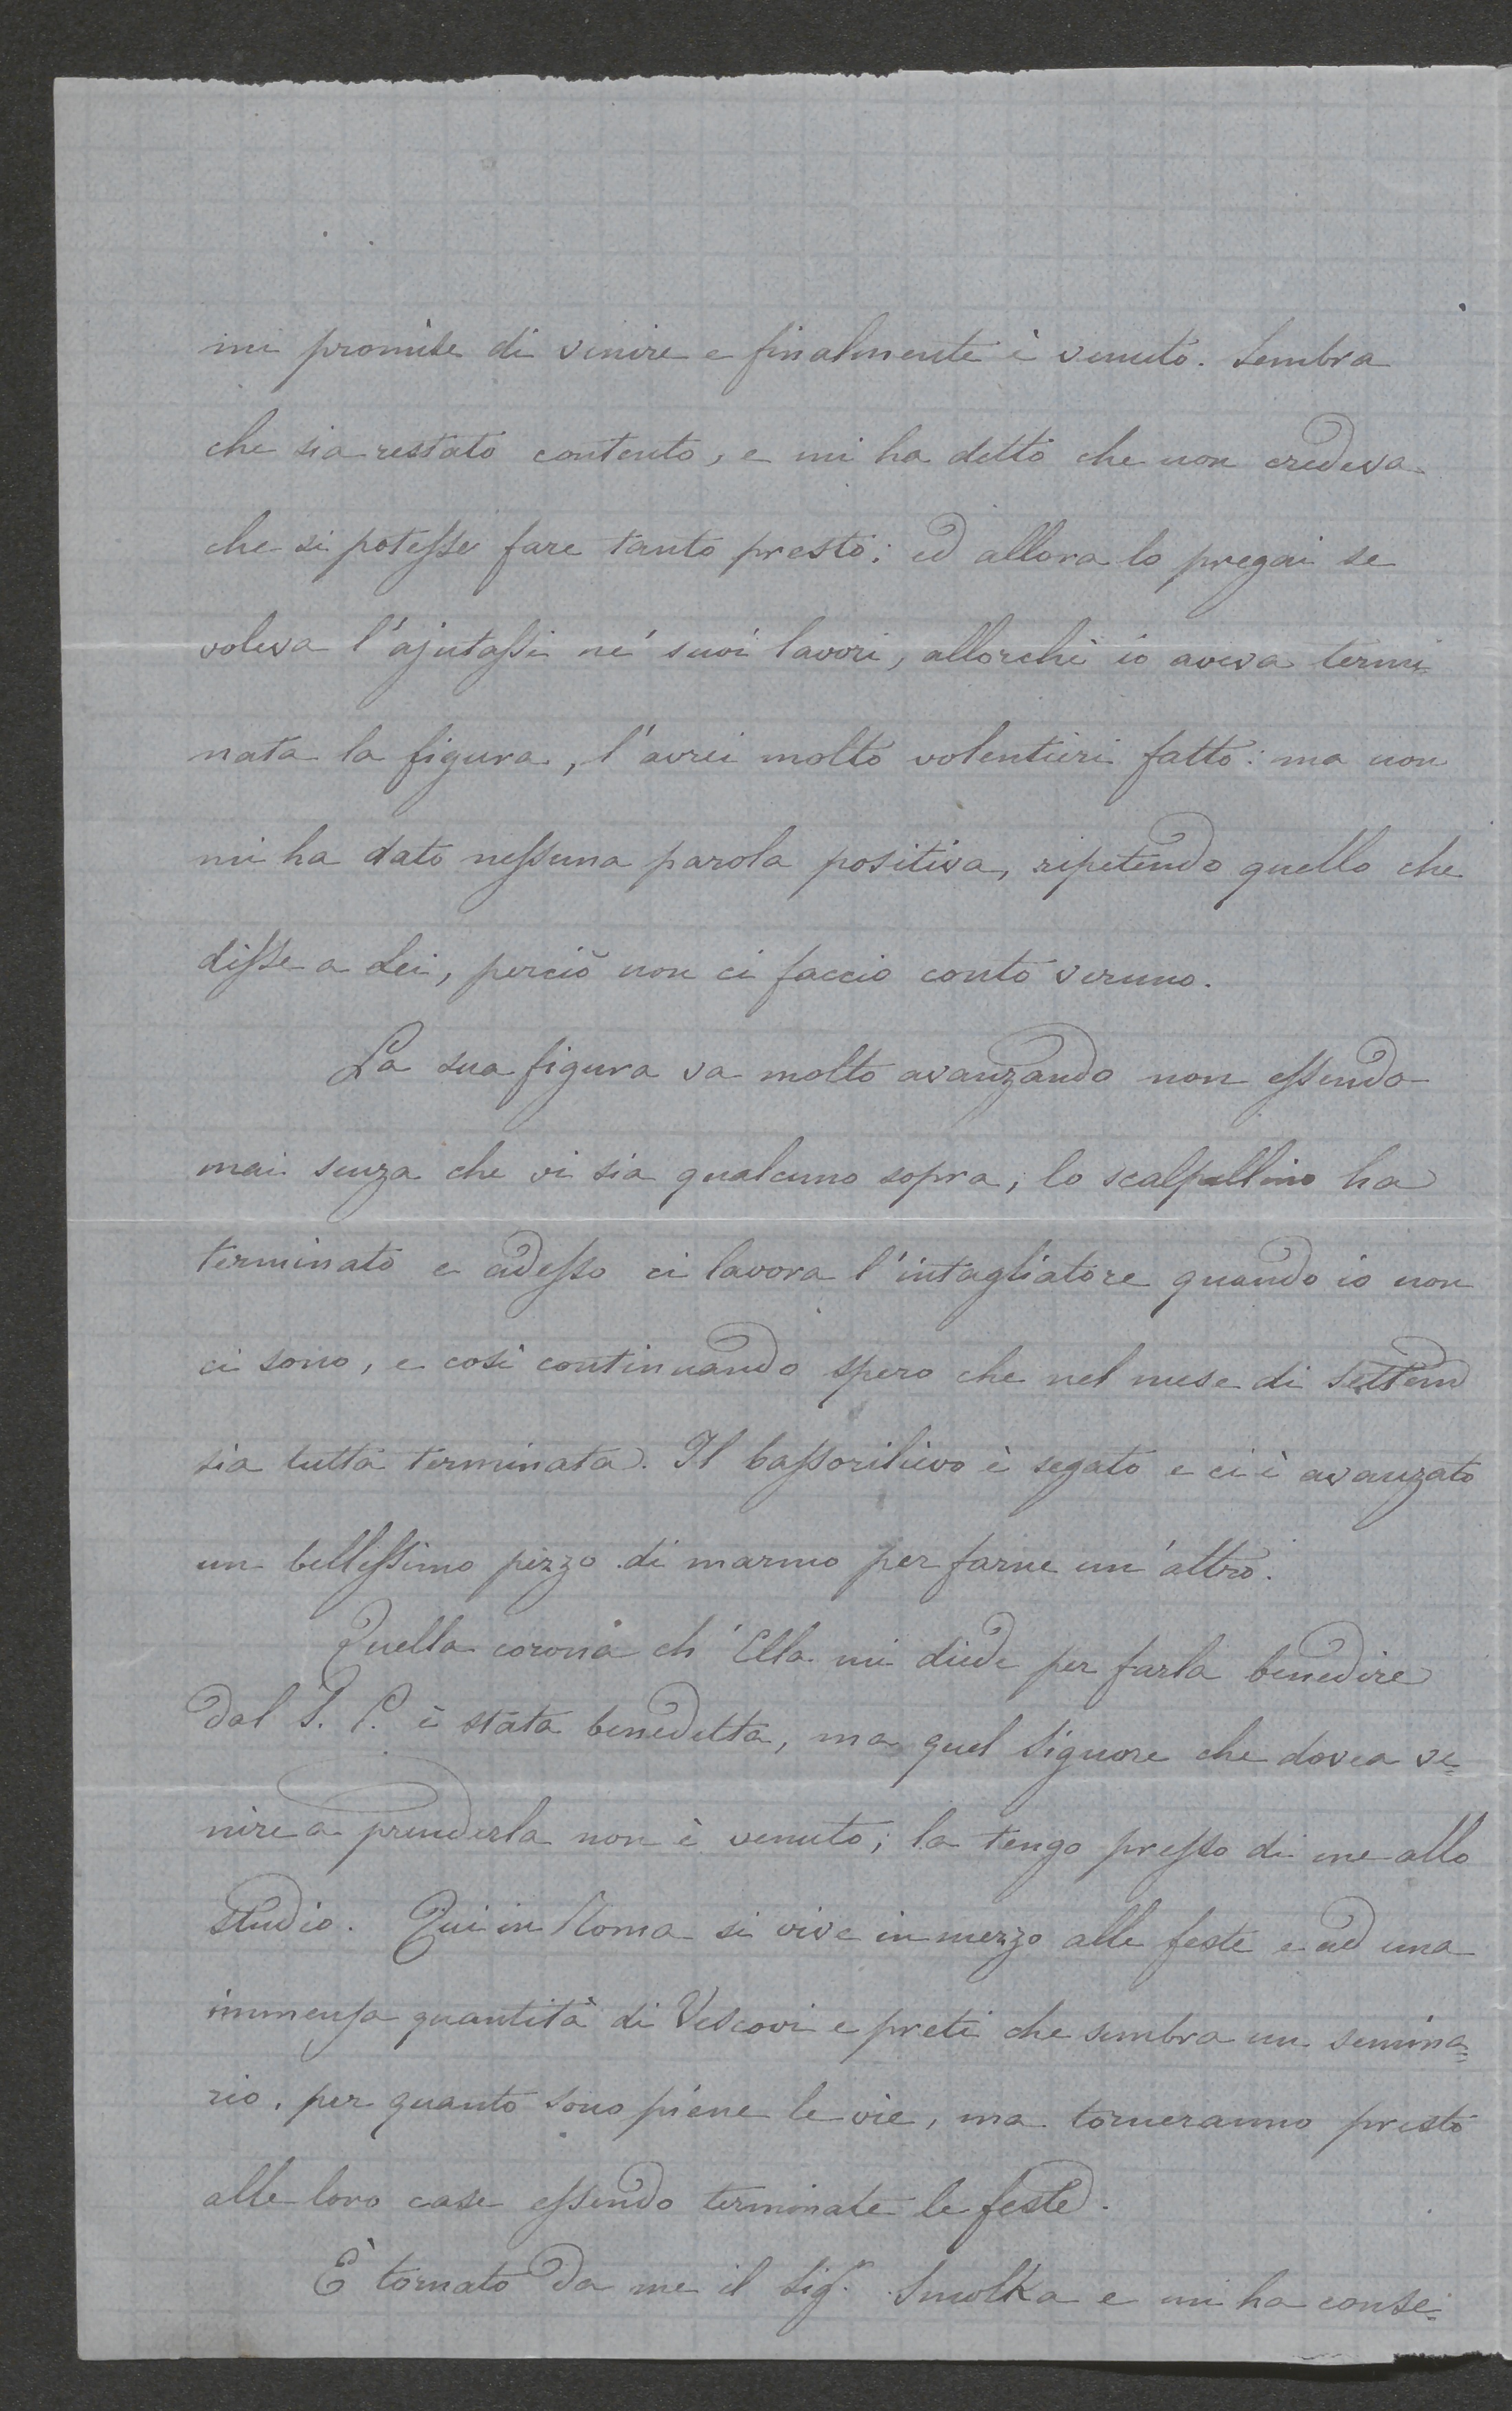 mi promise di venire e finalmente è venuto. Sembra
che sia restato contento, e mi ha detto che non credeva
che si potesse fare tanto presto; ed allora lo pregai se
voleva l'ajutassi ne' suoi lavori, allorchè io aveva termi=
nata la figura, l'avrei molto volentieri fatto: ma non
mi ha dato nessuna parola positiva, ripetendo quello che
disse a Lei, perciò non ci faccio conto veruno.
La sua figura va molto avanzando non essendo
mai senza che vi sia qualcuno sopra; lo scalpellino ha
terminato e adesso ci lavora l'intagliatore quando io non
ci sono, e così continuando spero che nel mese di Settem
sia tutta terminata. Il bassorilievo è segato e ci è avanzato
un bellissimo pezzo di marmo per farne un'altro.
Quella corona ch'Ella mi diede per farla benedire
dal S. P. è stata benedetta, ma quel Signore che dovea ve=
nire a prenderla non è venuto; la tengo presso di me allo
studio. Qui in Roma si vive in mezzo alle feste e ad una
immensa quantità di Vescovi e preti che sembra un semina=
rio, per quanto sono piene le vie, ma torneranno presto
alle loro case essendo terminate le feste.
È tornato da me il Sigr. Smolka e mi ha conse=